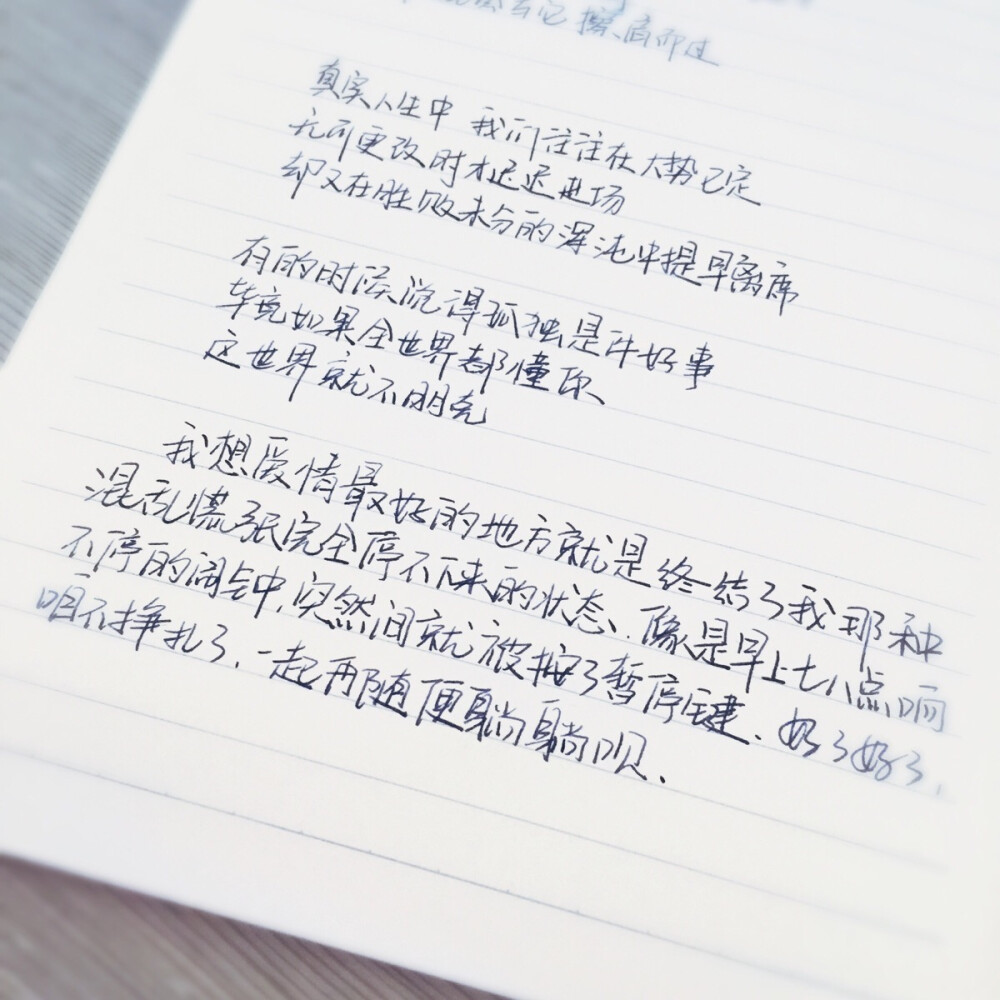 擦肩而过
真实人生中 我们往往在大势已定
无可更改时才迟迟进场
却又在胜败未分的浑沌中提早离席
有的时候沉得孤独是件好事
毕竟如果全世界都懂你
这世界就不朋克
我想爱情最好的地方就是终结了我那种
混乱慌张完全停不下来的状态、像是早上七八点响
不停的闹钟,突然间就被按了暂停键、好了好了,
咱不挣扎了、一起再随便躺躺呗.